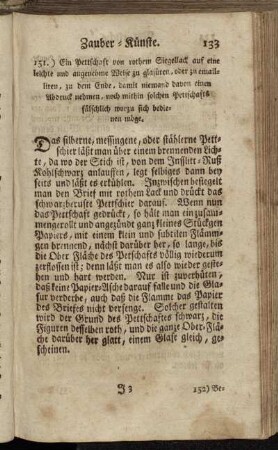 Zauber-Künste. 133
151.) Ein Pettschaft von rothem Siegellack auf eine
leichte und angenehme Weise zu glasüren, oder zu email-
liren, zu dem Ende, damit niemand davon einen
Abdruck nehmen, noch mithin solchen Pettschafts
fälschlich worzu sich bedie-
nen möge.
Das silberne, messingene, oder stählerne Pett-
schier läßt man über einem brennenden Lich-
te, da wo der Stich ist, von dem Inslitt-Ruß
Kohlschwarz anlauffen, legt selbiges dann bey
seits und läßt es erkühlen. Inzwischen besiegelt
man den Brief mit rothem Lack und drückt das
schwarzberußte Pettschier darauf. Wenn nun
das Pettschaft gedrückt, so hält man ein zusam-
mengerollt und angezündt ganz kleines Stückgen
Papiers, mit einem klein und subtilen Flämm-
gen brennend, nächst darüber her, so lange, bis
die Ober Fläche des Petschafts völlig wiederum
zerflossen ist; denn läßt man es also wieder geste-
hen und hart werden. Nur ist zuverhüten,
daß keine Papier-Asche darauf falle und die Gla-
sur verderbe, auch daß die Flamme das Papier
des Briefes nicht versenge. Solcher gestalten
wird der Grund des Pettschaftes schwarz, die
Figuren desselben roth, und die ganze Ober-Flä-
che darüber her glatt, einem Glase gleich, ge-
scheinen.
J 3 152) Be-